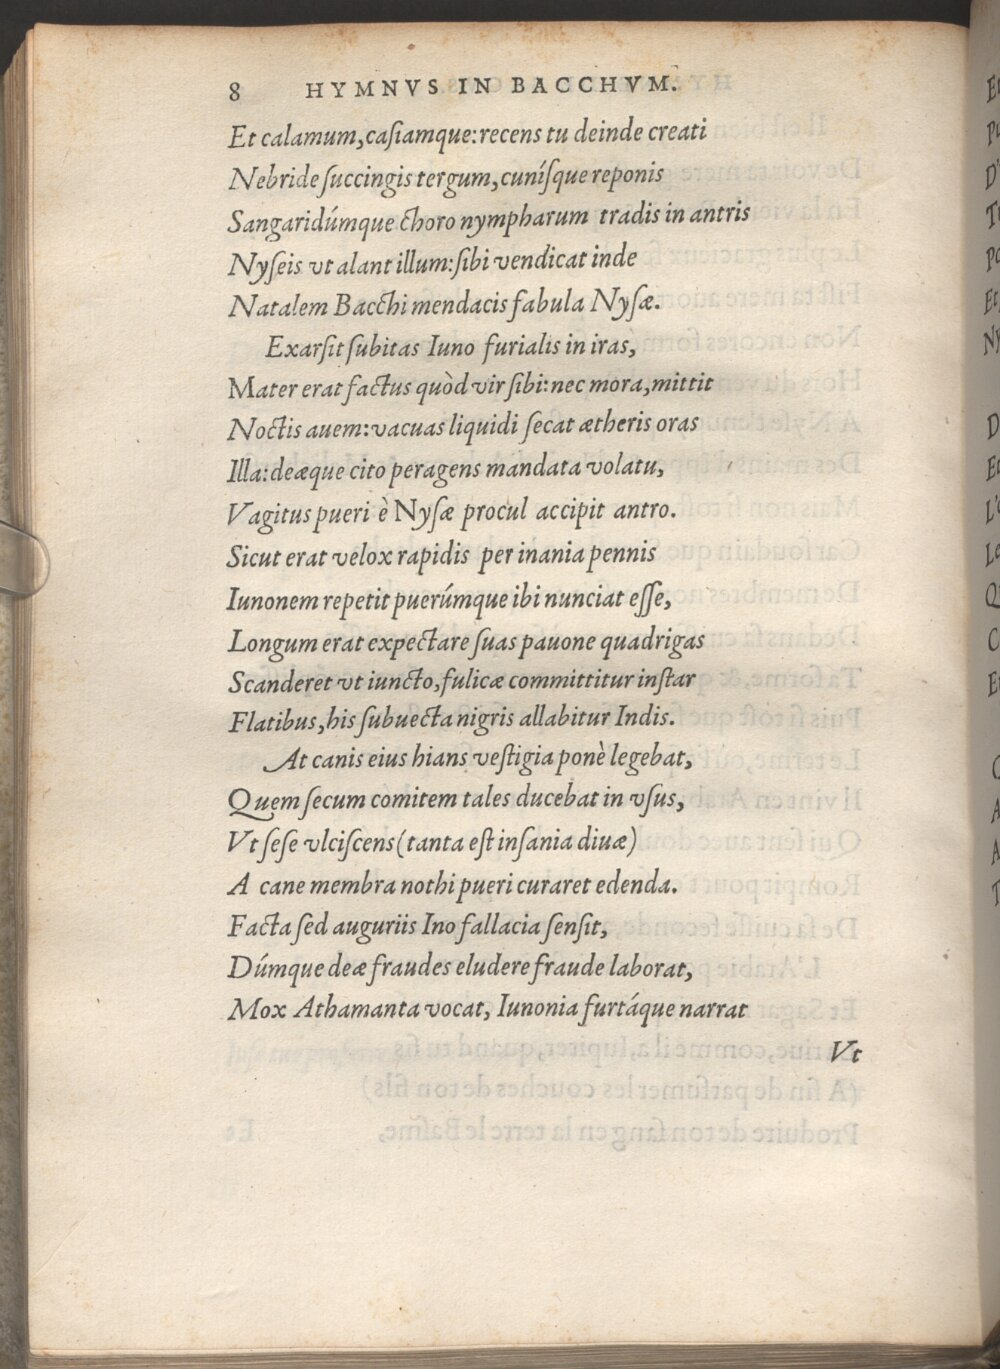 8 HYMNVS IN BACCHVM.
Et calamum,caſiamque:recens tu deinde creati
Nebride ſuccingis tergum,cuníſque reponis
Sangaridúmque choro nympharum tradis in antris
Nyſeis vt alant illum:ſibi vendicat inde
Natalem Bacchi mendacis fabula Nyſæ.
Exarſit ſubitas Iuno furialis in iras,
Mater erat factus quòd vir ſibi:nec mora,mittit
Noctis auem:vacuas liquidi ſecat ætheris oras
Illa:deæque cito peragens mandata volatu,
Vagitus pueri è Nyſæ procul accipit antro.
Sicut erat velox rapidis per inania pennis
Iunonem repetit puerúmque ibi nunciat eſſe,
Longum erat expectare ſuas pauone quadrigas
Scanderet vt iuncto,fulicæ committitur inſtar
Flatibus,his ſubuecta nigris allabitur Indis.
At canis eius hians veſtigia ponè legebat,
Quem ſecum comitem tales ducebat in vſus,
Vt ſeſe vlciſcens(tanta eſt inſania diuæ)
A cane membra nothi pueri curaret edenda.
Facta ſed auguriis Ino fallacia ſenſit,
Dúmque deæ fraudes eludere fraude laborat,
Mox Athamanta vocat, Iunonia furtáque narrat
Vt